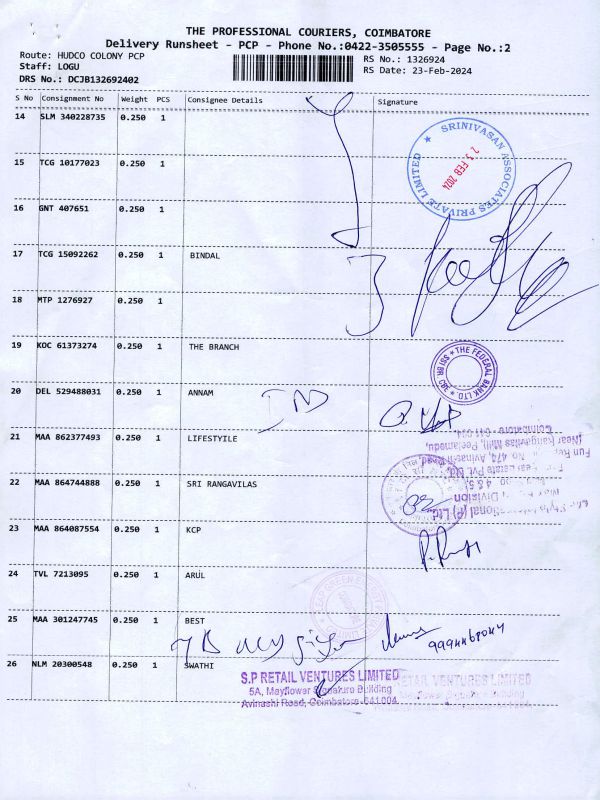 THE PROFESSIONAL COURIERS, COIMBATORE
Delivery Runsheet - PCP - Phone No.:0422-3505555 - Page No.:2
Route: HUDCO COLONY PCP RS No.: 1326924
Staff: LOGU RS Date: 23-Feb-2024
DRS No.: DCJB132692402
S No Consignment No Weight PCS Consignee Details Signature
14 SLM 340228735 0.250 1
SRINIVASAN ASSOCIATES PRIVATE LIMITED
23 FEB 2024
15 TCG 10177023 0.250 1
16 GNT 407651 0.250 1
17 TCG 15092262 0.250 1 BINDAL
18 MTP 1276927 0.250 1
19 KOC 61373274 0.250 1 THE BRANCH
THE FEDERAL BANK LTD.
20 DEL 529488031 0.250 1 ANNAM
21 MAA 862377493 0.250 1 LIFESTYILE
22 MAA 864744888 0.250 1 SRI RANGAVILAS
23 MAA 864087554 0.250 1 KCP
24 TVL 7213095 0.250 1 ARUL
25 MAA 301247745 0.250 1 BEST
26 NLM 20300548 0.250 1 SWATHI
S.P RETAIL VENTURES LIMITED
5A, Mayflower Signature Building
Avinashi Road, Coimbatore-641 004